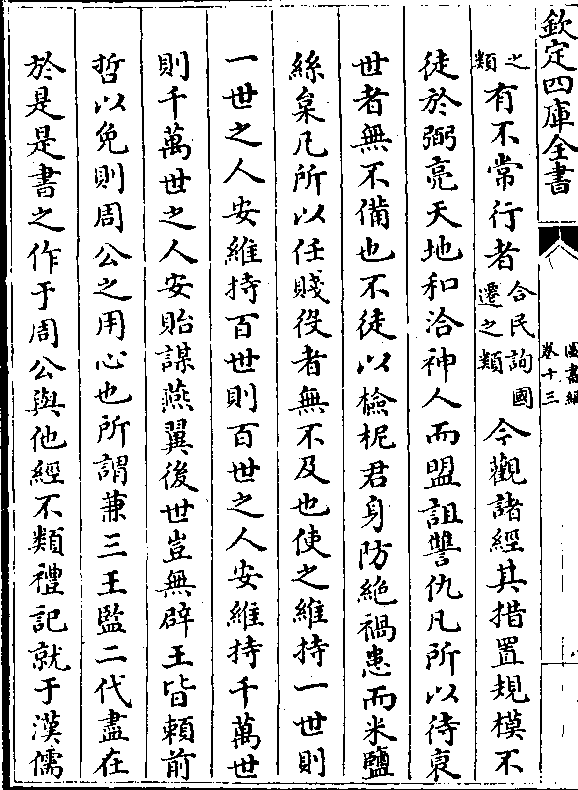 欽定四庫全書
圖書編
卷十三
之類有不常行者合民詢國遷之類今觀諸經其措置規模不
徒於弼亮天地和洽神人而盟詛讐仇凡所以待衰
世者無不備也不徒以檢柅君身防絶禍患而米鹽
絲枲凡所以任賤役者無不及也使之維持一世則
一世之人安維持百世則百世之人安維持千萬世
則千萬世之人安貽謀燕翼後世豈無辟王皆賴前
哲以免則周公之用心也所謂兼三王監二代盡在
於是是書之作于周公與他經不類禮記就于漢儒